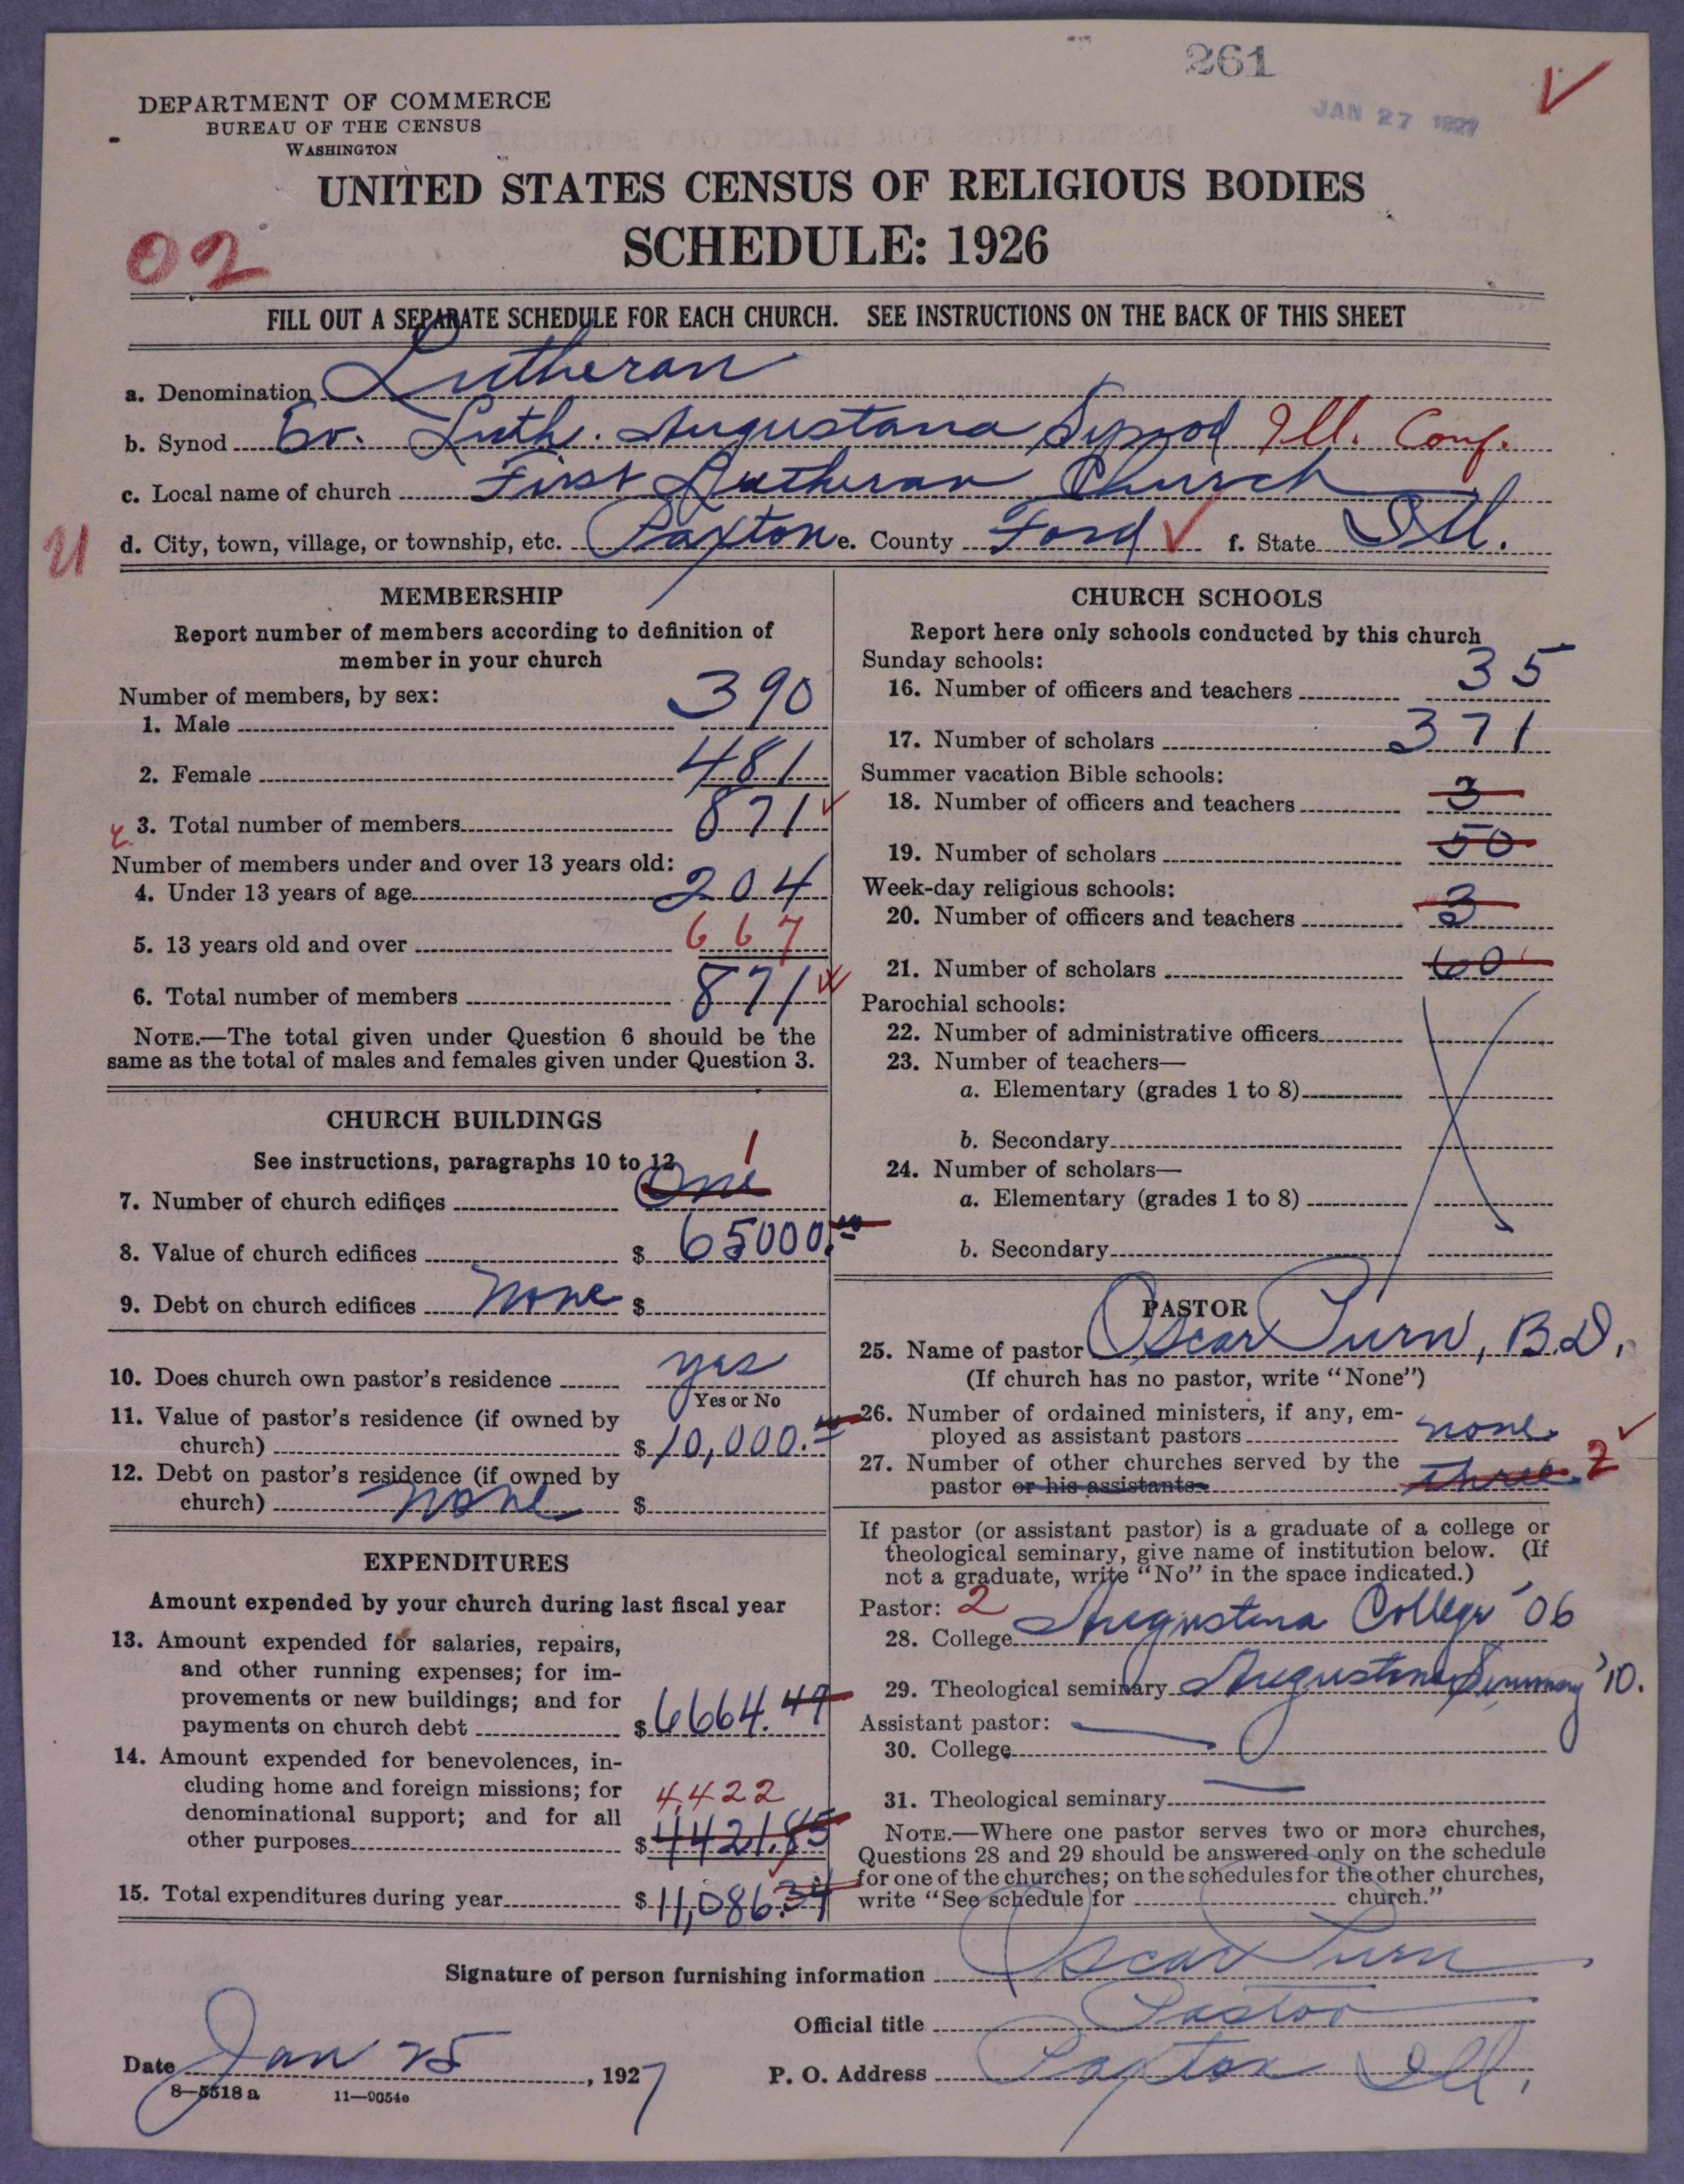 261
JAN 27 1927
DEPARTMENT OF COMMERCE
BUREAU OF THE CENSUS
WASHINGTON
UNITED STATES CENSUS OF RELIGIOUS BODIES
SCHEDULE: 1926
02
FILL OUT A SEPARATE SCHEDULE FOR EACH CHURCH. SEE INSTRUCTIONS ON THE BACK OF THIS SHEET
a. Denomination Lutheran
b. Synod Ev. Luth. Augustana Synod Ill. Conf.
c. Local name of church First Lutheran Church
d. City, town, village, or township, etc. Paxton e. County Ford f. State Ill.
MEMBERSHIP
Report number of members according to definition of
member in your church
Number of members, by sex:
1. Male 390
2. Female 481
3. Total number of members 871
Number of members under and over 13 years old:
4. Under 13 years of age 204
5. 13 years old and over 667
6. Total number of members 871
NOTE.—The total given under Question 6 should be the
same as the total of males and females given under Question 3.
CHURCH BUILDINGS
See instructions, paragraphs 10 to 12
1
7. Number of church edifices One
8. Value of church edifices $ 65000.00
9. Debt on church edifices None $
10. Does church own pastor's residence yes
Yes or No
11. Value of pastor's residence (if owned by
church) $ 10,000.00
12. Debt on pastor's residence (if owned by
church) None $
EXPENDITURES
Amount expended by your church during last fiscal year
13. Amount expended for salaries, repairs,
and other running expenses; for im-
provements or new buildings; and for
payments on church debt $ 6664.49
14. Amount expended for benevolences, in-
cluding home and foreign missions; for
4,422
denominational support; and for all
other purposes $ 4421.85
15. Total expenditures during year $ 11,086.34
CHURCH SCHOOLS
Report here only schools conducted by this church
Sunday schools:
16. Number of officers and teachers 35
17. Number of scholars 371
Summer vacation Bible schools:
18. Number of officers and teachers 3
19. Number of scholars 50
Week-day religious schools:
20. Number of officers and teachers 3
21. Number of scholars 60
Parochial schools:
22. Number of administrative officers
23. Number of teachers—
a. Elementary (grades 1 to 8)
b. Secondary
24. Number of scholars—
a. Elementary (grades 1 to 8)
b. Secondary
PASTOR
25. Name of pastor Oscar Purn, B.D.
(If church has no pastor, write "None")
26. Number of ordained ministers, if any, em-
ployed as assistant pastors none
27. Number of other churches served by the
pastor or his assistants three. 2
If pastor (or assistant pastor) is a graduate of a college or
theological seminary, give name of institution below. (If
not a graduate, write "No" in the space indicated.)
Pastor: 2
28. College Augustana College '06
29. Theological seminary Augustana Seminary '10.
Assistant pastor:
30. College
31. Theological seminary
NOTE.—Where one pastor serves two or more churches,
Questions 28 and 29 should be answered only on the schedule
for one of the churches; on the schedules for the other churches,
write "See schedule for church."
Signature of person furnishing information Oscar Purn
Official title Pastor
Date Jan 25, 1927
P. O. Address Paxton Ill.
8—5518 a 11—9054e